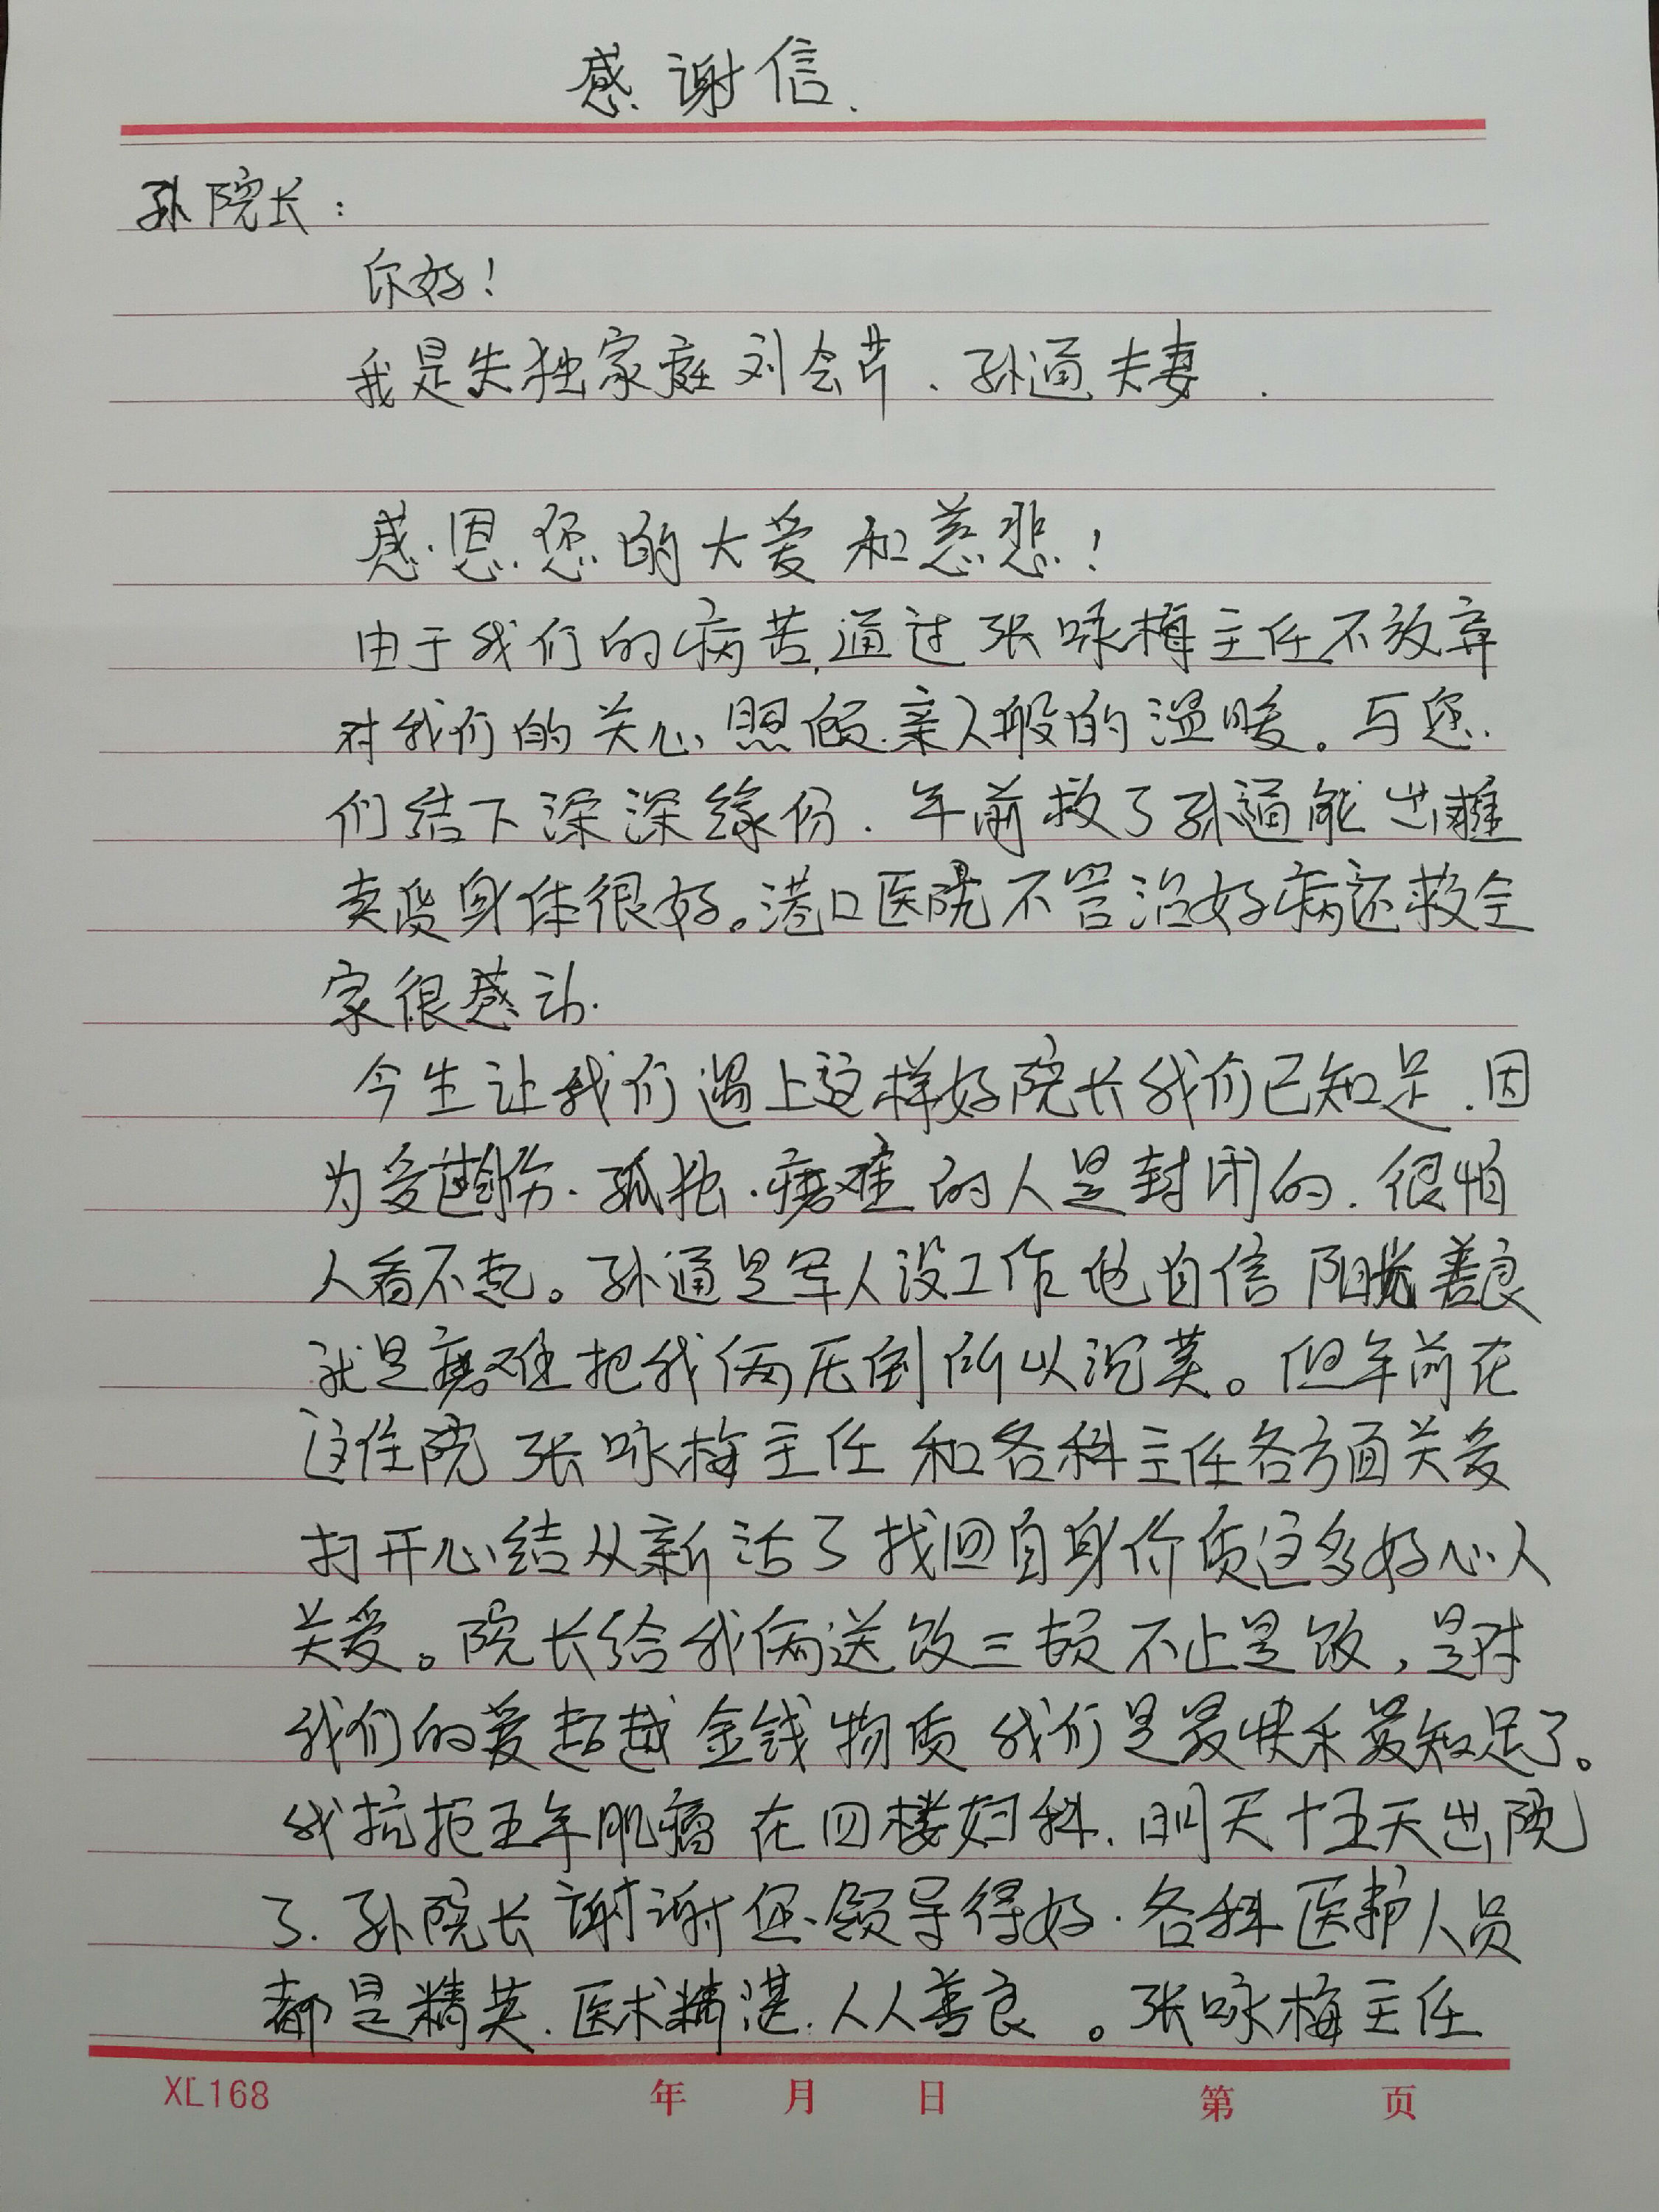 感谢信.
孙院长：
你好！
我是失独家庭刘会芹、孙通夫妻.
感恩您的大爱和慈悲！
由于我们的病苦,通过张咏梅主任不放弃
对我们的关心照顾.亲人般的温暖。与您
们结下深深缘份.年前救了孙通能出摊
卖货身体很好。港口医院不管治好病还救全
家很感动.
今生让我们遇上这样好院长我们已知足.因
为受过伤.孤独.磨难的人是封闭的.很怕
人看不起。孙通是军人没工作他自信阳光善良
就是磨难把我俩压倒所以沉莫。但年前在
这住院张咏梅主任和各科主任各方面关爱
打开心结从新活了找回自身价质这多好心人
关爱。院长给我俩送饭三顿不止是饭,是对
我们的爱超越金钱物质我们是最快乐最知足了。
我抗拒五年肌瘤在四楼妇科.明天十五天出院
了.孙院长谢谢您领导得好.各科医护人员
都是精英.医术精湛.人人善良。张咏梅主任
XL168 年 月 日 第 页